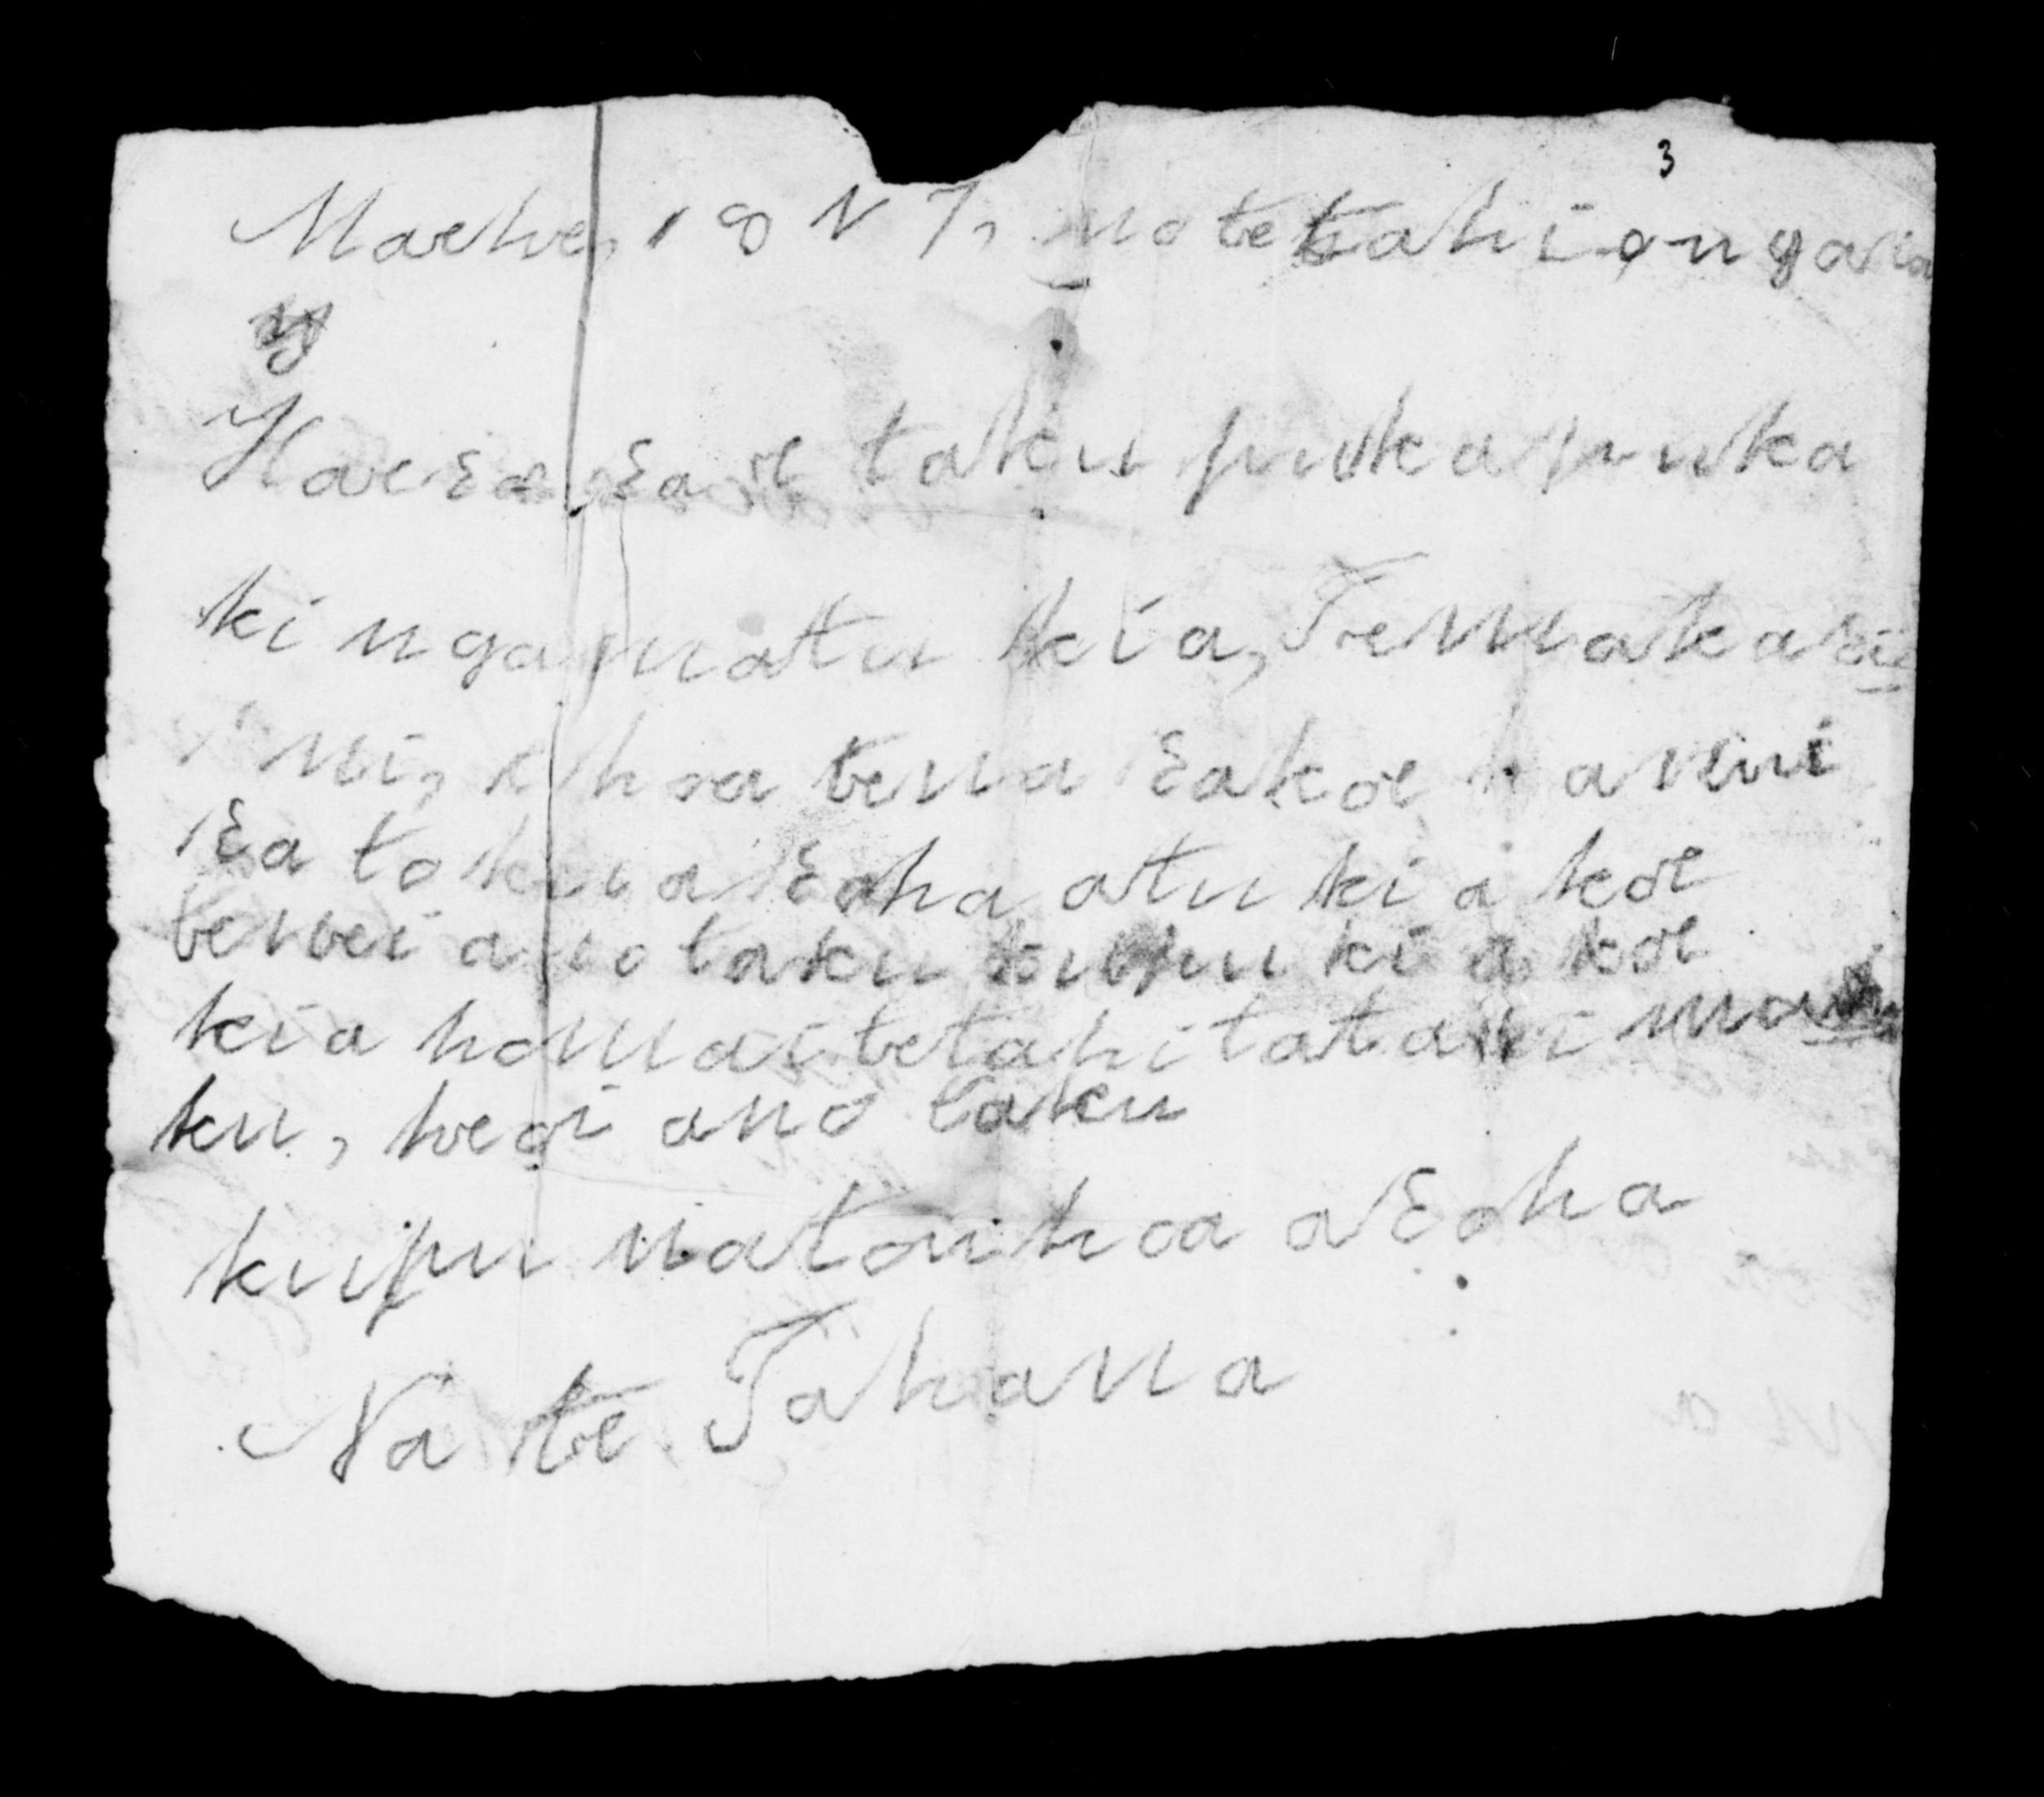 3
Maehe, 1 8 N 7, no te tahi o nga ra
Haere ra e taku pukapuka
ki nga motu kia, Te Makari
ni, e hoa tena ra koe ka nui
ra toku aroha atu ki a koe
tenei ano taku kupu ki a koe
kia homai tetahi tatari ma
ku, heoi ano taku
kupu na tou hoa aroha
Na te Tahana